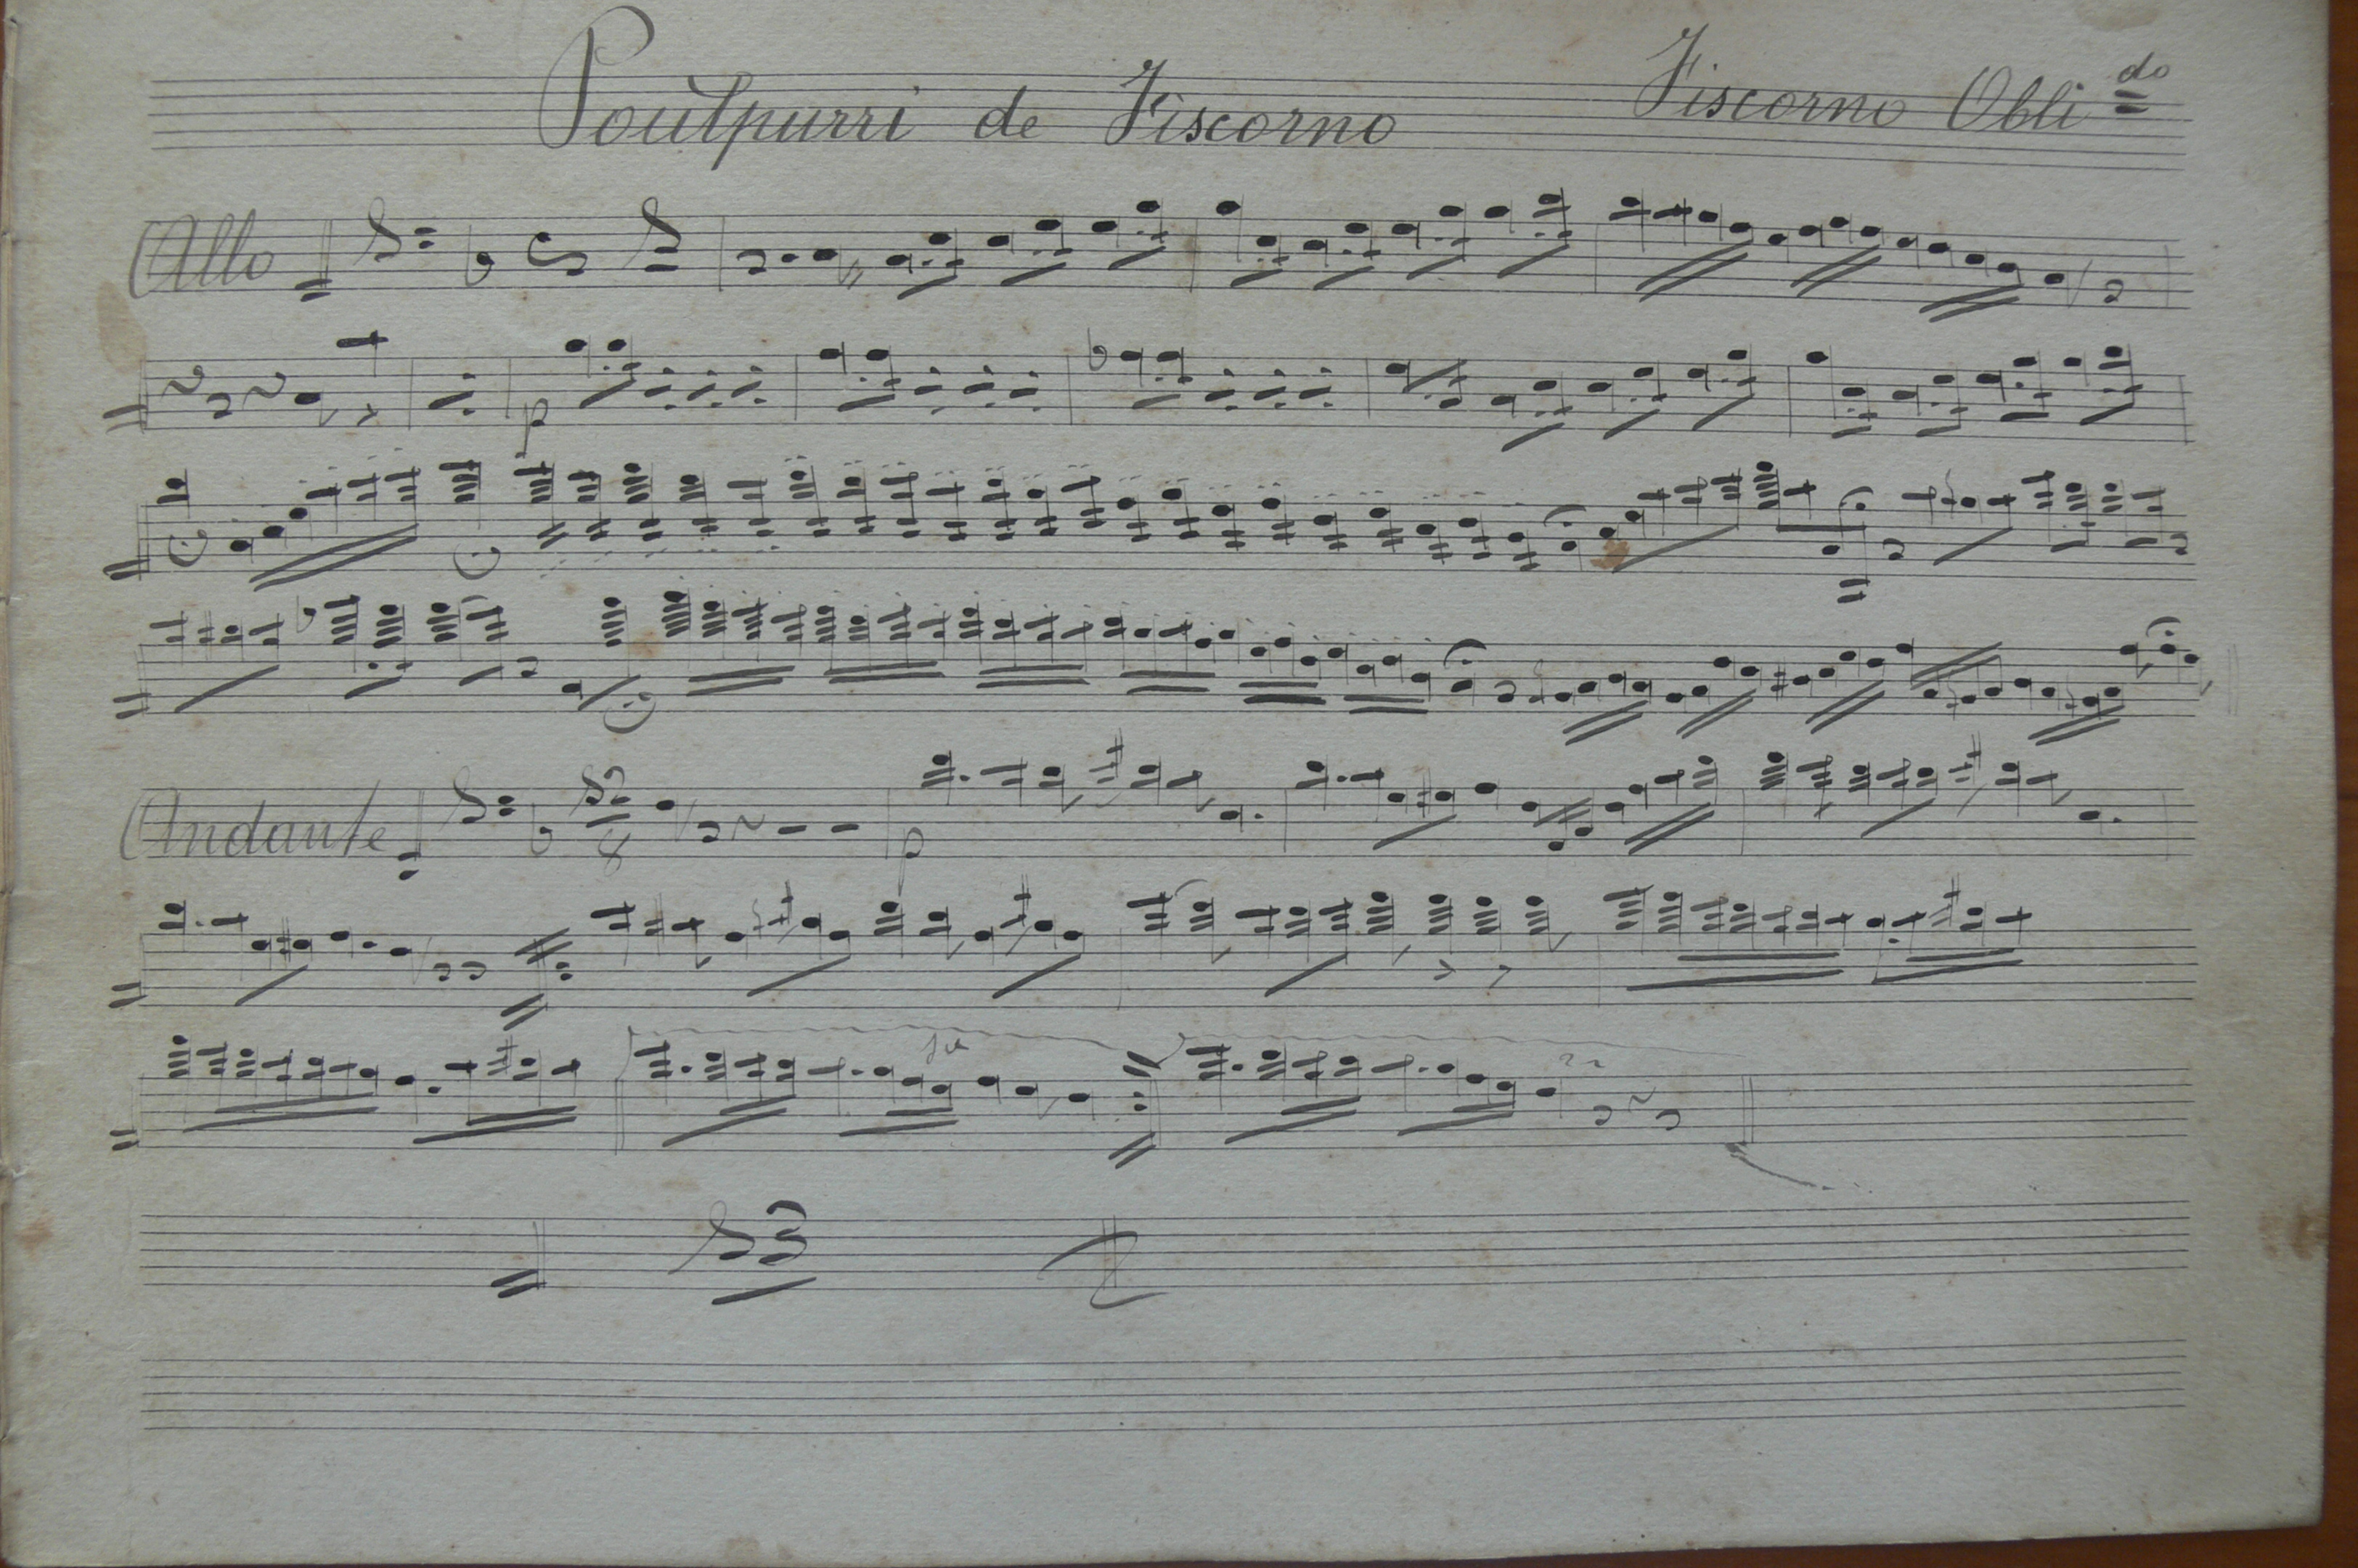 Poutpurri de Fiscorno Fiscorno Obli do
Allo
p
Andante 12 8 p